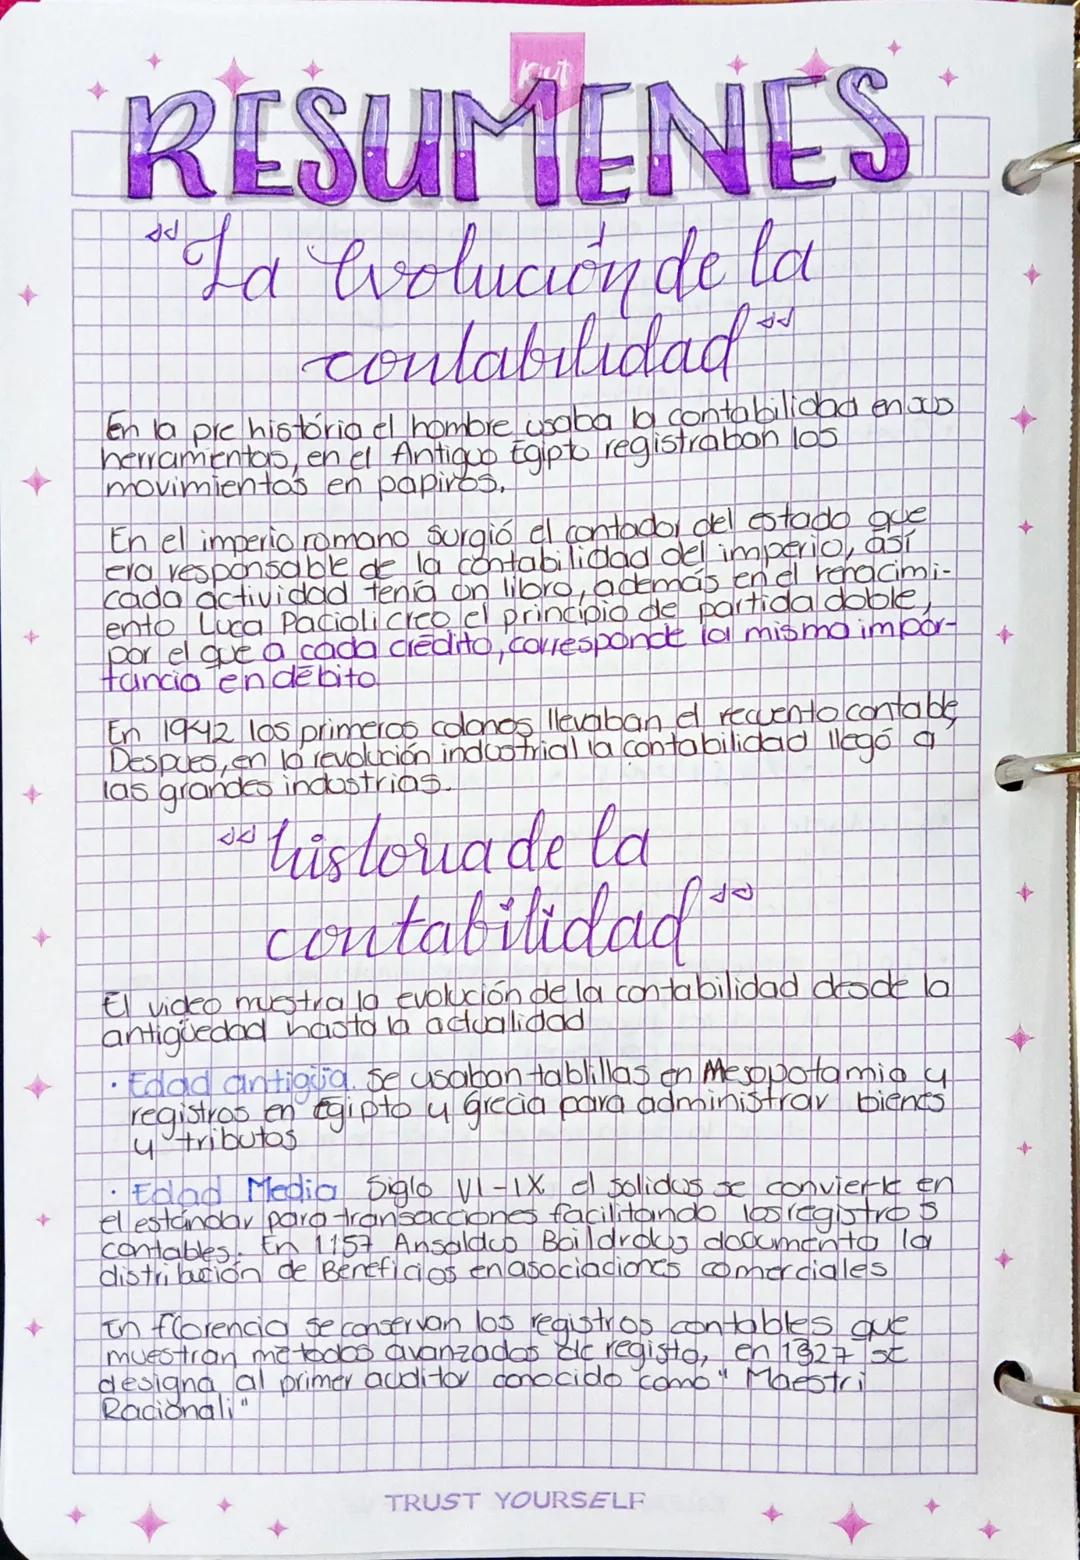 Kiut
RESUMENES
"La Evolución de la
contabilidad"
En la pre história el hombre usaba la contabilidad en sus
herramientas, en el Antiguo Egipto registraban los
movimientos en papiros.
En el imperio romano surgió el contador del estado que
era responsable de la contabilidad del imperio, así
cada actividad tenía un libro, además en el renacimi-
ento Luca Pacioli creo el principio de partida doble,
por el que a cada crédito, corresponde la misma impor-
tancia en débito
En 1942 los primeros colonos llevaban el recuento contable,
Despues, en la revolución industrial la contabilidad llegó a
las grandes industrias.
"historia de la
contabilidad"
El video muestra la evolución de la contabilidad desde la
antigüedad hasta la actualidad
· Edad antigüa. Se usaban tablillas en Mesopotamia y
registros en Egipto y Grecia para administrar bienes
y tributos
· Edad Media Siglo VI-IX el solidus se convierte en
el estándar para transacciones facilitando los registros
contables. En 1157 Ansalduo Baildrokus documento la
distribución de Beneficios en asociaciones comerciales
En florencia se conservan los registros contables que
muestran metodos avanzados de registo, en 1327 se
designa al primer auditor conocido como "Maestri
Racionali"
TRUST YOURSELF